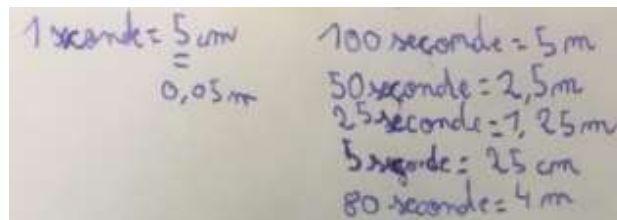 1 seconde = 5 cm
=
0,05 m
100 seconde = 5 m
50 seconde = 2,5 m
25 seconde = 1,25 m
5 seconde = 25 cm
80 seconde = 4 m